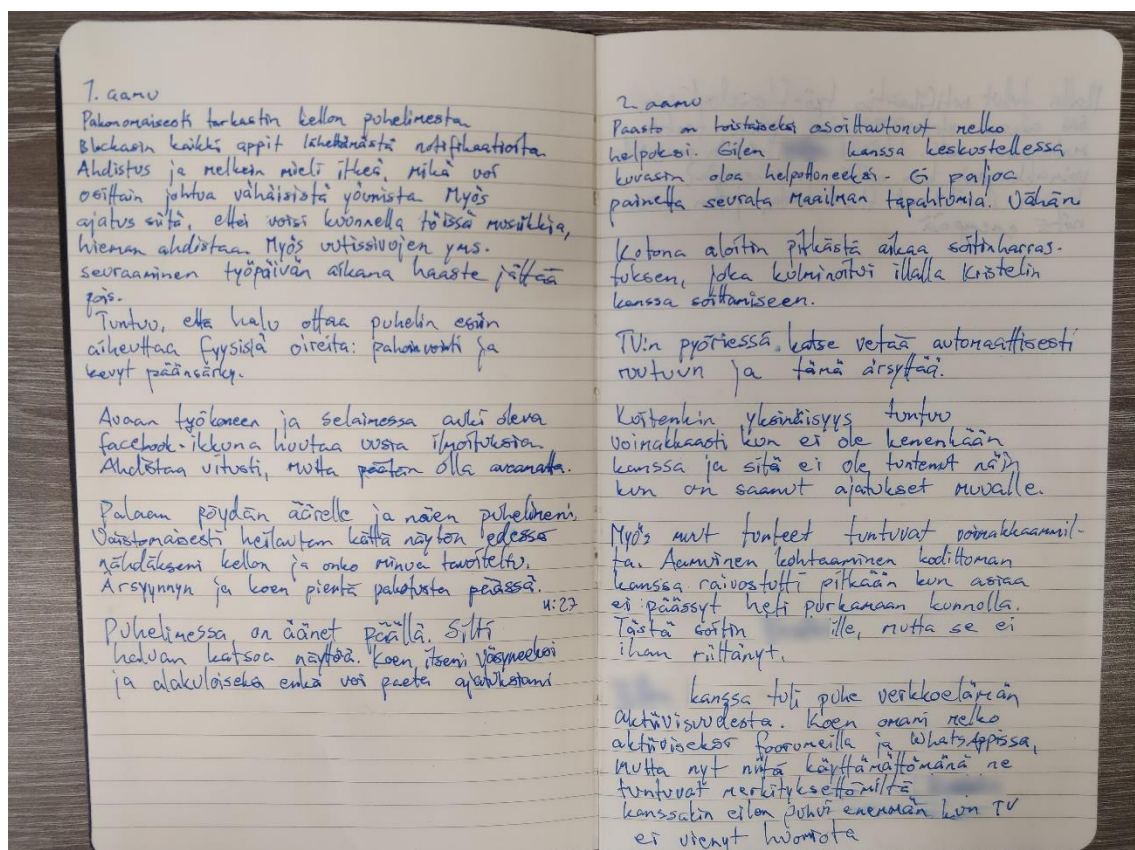 1. aamu
Pakonomaisesti tarkastin kellon puhelimesta
Blockasin kaikki appit lähettämästä notifikaatioita
Ahdistus ja melkein mieli itkeä, mikä voi
osittain johtua vähäisistä yöunista Myös
ajatus siitä, ettei voisi kuunnella töissä musiikkia,
hieman ahdistaa. Myös uutissivujen yms.
seuraaminen työpäivän aikana haaste jättää
pois.
Tuntuu, että halu ottaa puhelin esiin
aiheuttaa fyysisiä oireita: pahoinvointi ja
kevyt päänsärky.
Avaan työkoneen ja selaimessa auki oleva
facebook-ikkuna huutaa uusia ilmoituksia.
Ahdistaa vitusti, mutta päätän olla avaamatta.
Palaan pöydän äärelle ja näen puhelimeni.
Vaistomaisesti heilautan kättä näytön edessä
nähdäkseni kellon ja onko minua tavoiteltu.
Ärsyynnyn ja koen pientä pakotusta päässä.
11:27
Puhelimessa on äänet päällä. Silti
haluan katsoa näyttöä. Koen itseni väsyneeksi
ja alakuloiseksi enkä voi paeta ajatuksiani
2. aamu
Paasto on toistaiseksi osoittautunut melko
helpoksi. Eilen kanssa keskustellessa
kuvasin oloa helpottuneeksi. Ei paljoa
painetta seurata Maailman tapahtumia. Vähän
Kotona aloitin pitkästä aikaa soitinharras-
tuksen, joka kulminoitui illalla Kristelin
kanssa soittamiseen.
TV:n pyöriessä, katse vetää automaattisesti
ruutuun ja tämä ärsyttää.
Kuitenkin yksinäisyys tuntuu
voimakkaasti kun ei ole kenenkään
kanssa ja sitä ei ole tuntenut näin
kun on saanut ajatukset muualle.
Myös muut tunteet tuntuvat voimakkaammil-
ta. Aamuinen kohtaaminen kodittoman
kanssa raivostutti pitkään kun asiaa
ei päässyt heti purkamaan kunnolla.
Tästä soitin ille, mutta se ei
ihan riittänyt.
kanssa tuli puhe verkkoelämän
aktiivisuudesta. Koen omani melko
aktiiviseksi foorumeilla ja WhatsAppissa,
mutta nyt niitä käyttämättömänä ne
tuntuvat merkityksettömiltä.
kanssakin eilen puhui enemmän kun TV
ei vienyt huomiota